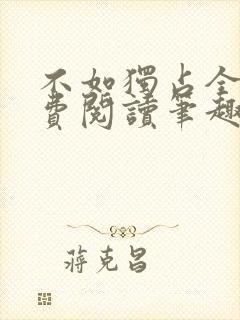 不如獨占全
費閱讀筆趣
蔣克昌